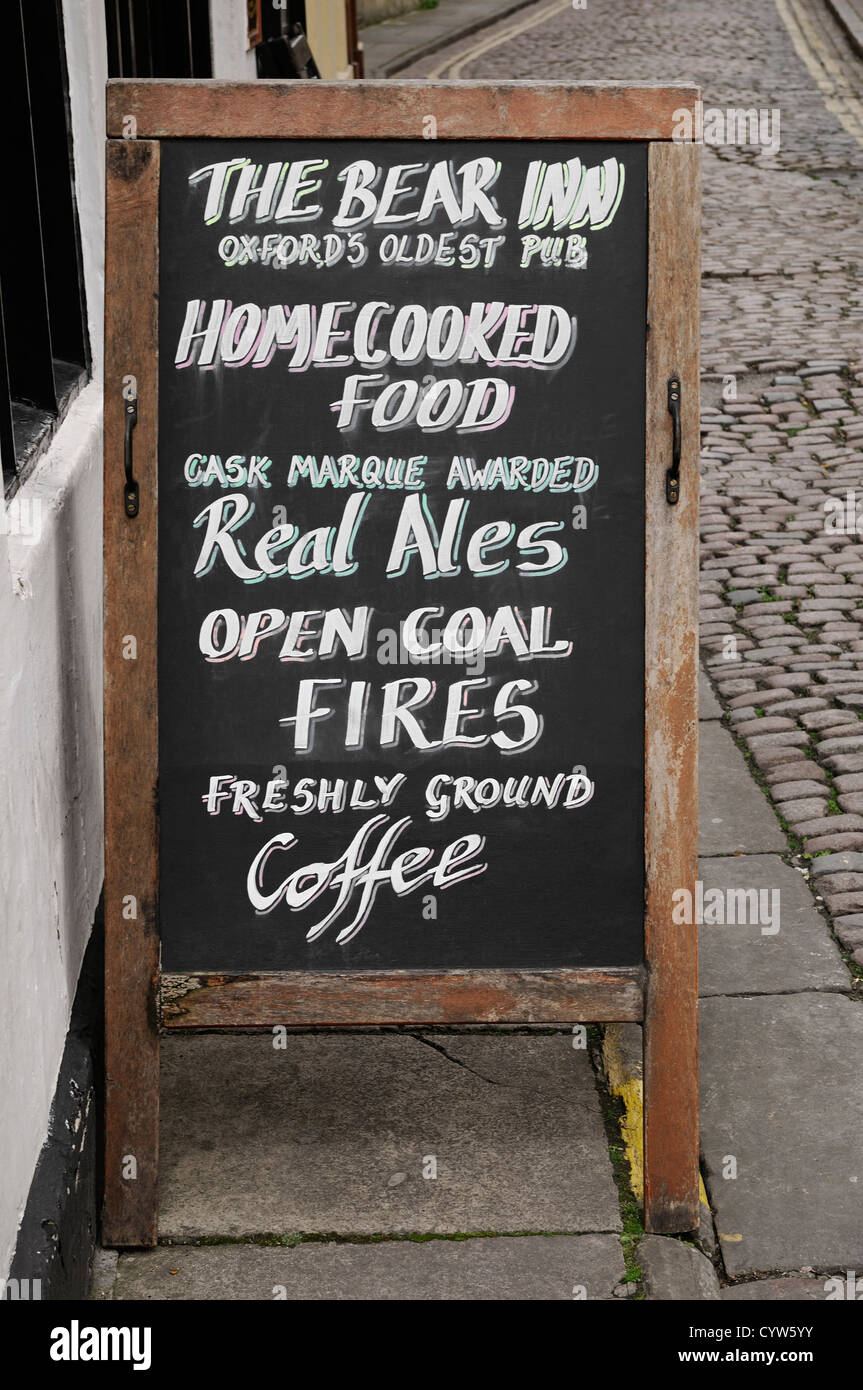 THE BEAR INN
OXFORD'S OLDEST PUB
HOMECOOKED
FOOD
CASK MARQUE AWARDED
Real Ales
OPEN COAL
FIRES
FRESHLY GROUND
Coffee
alamy
Image ID: CYW5YY
www.alamy.com